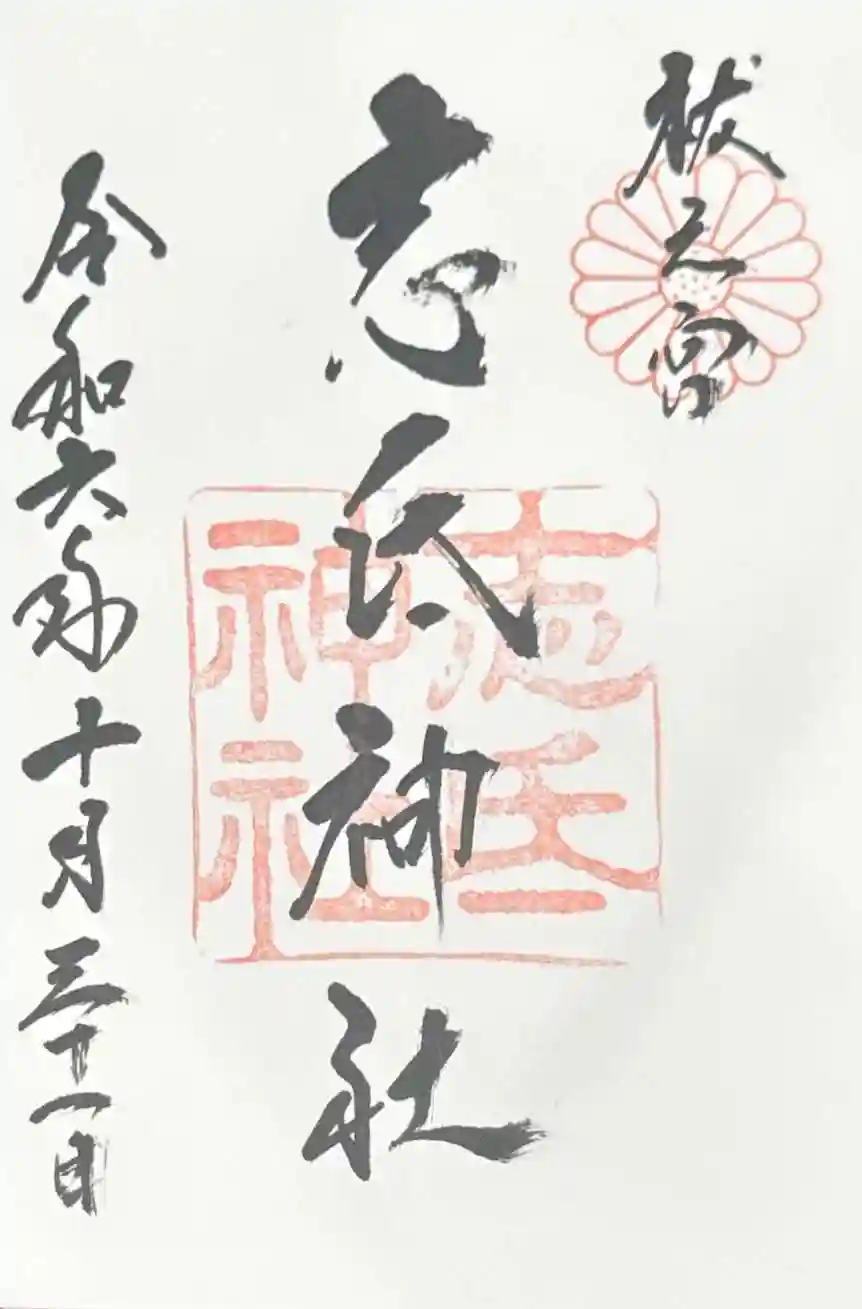 祓之宮
志氐神社
志氐
神社
令和六年十月三十一日